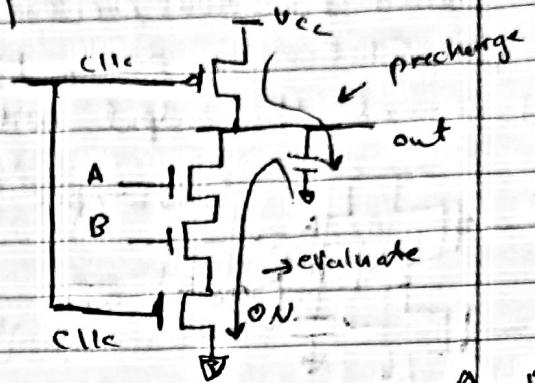 Vcc
Clk
precharge
out
A
B
evaluate
ON.
Clk